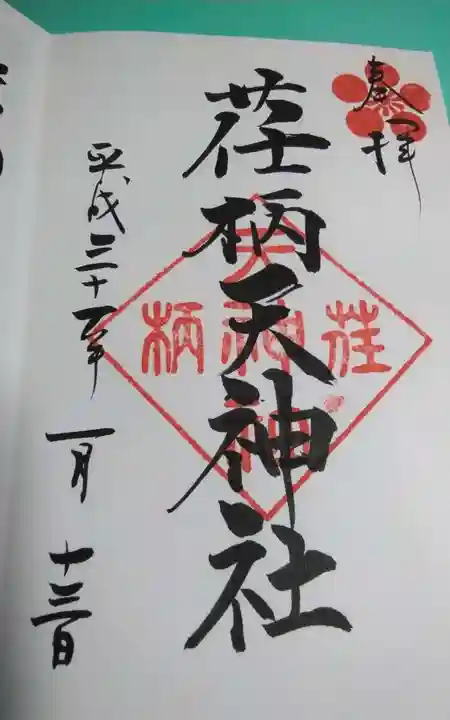 奉拝
荏柄天神社
荏柄天神社
平成三十一年一月十三日